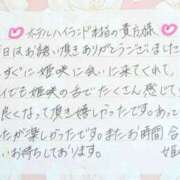 ホテルハイランド本館の貴方様
日はお誘い頂きありがとうございました
すぐに姫咲に会いに来てくれて
イでも姫咲の舌でたくさん感じて
良くなって頂き嬉しかったです。あっ
たが楽しかったです。またお時間合
お待ちしております。
姫